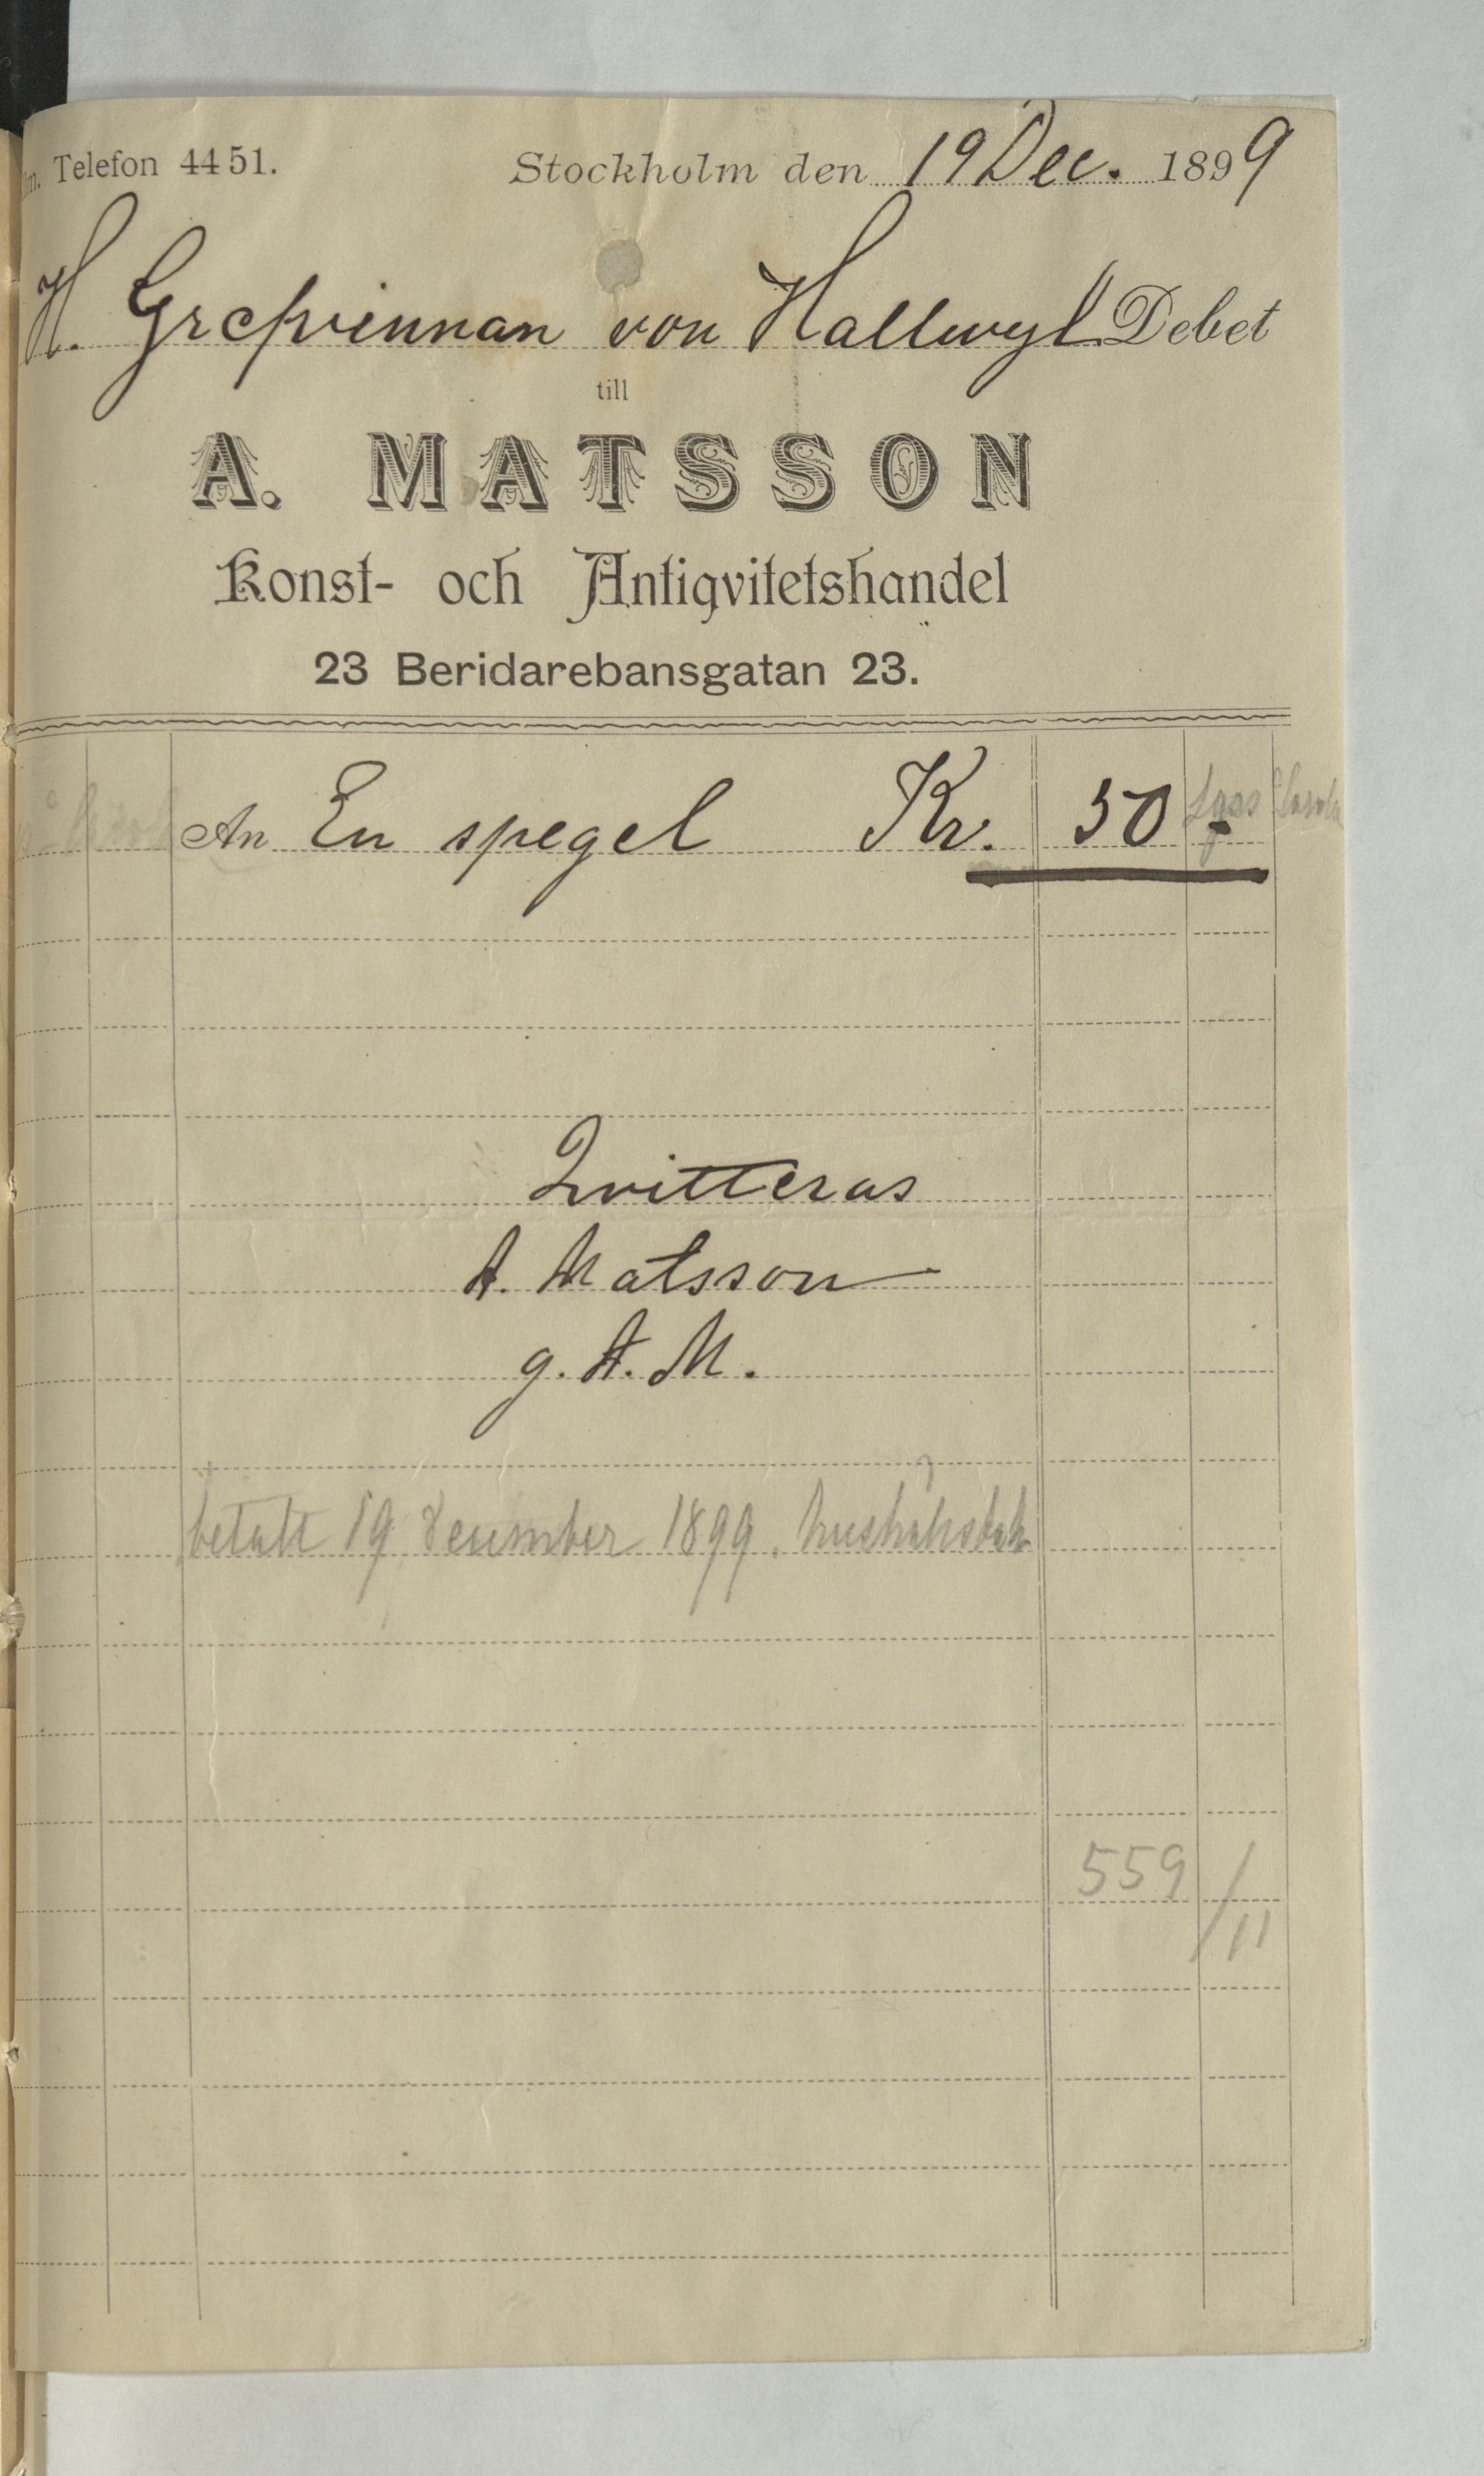 Telefon 4451.
Stockholm den 19 Dec. 1899
H. Grefvinnan von Hallwyl Debet
till
A. MATSSON
Konst- och Antiqvitetshandel
23 Beridarebansgatan 23.
An En spegel Kr. 50 -
Qvitteras
A. Matsson
g. A. M.
betalt 19 december 1899.
559/11